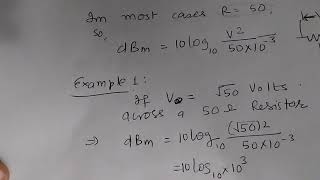 In most cases R = 50,
So,
dBm = 10 log₁₀ V² / 50×10⁻³
Example 1:
If V = √50 Volts
across a 50 Ω Resistor
⇒ dBm = 10 log₁₀ (√50)² / 50×10⁻³
= 10 log₁₀ ×10³